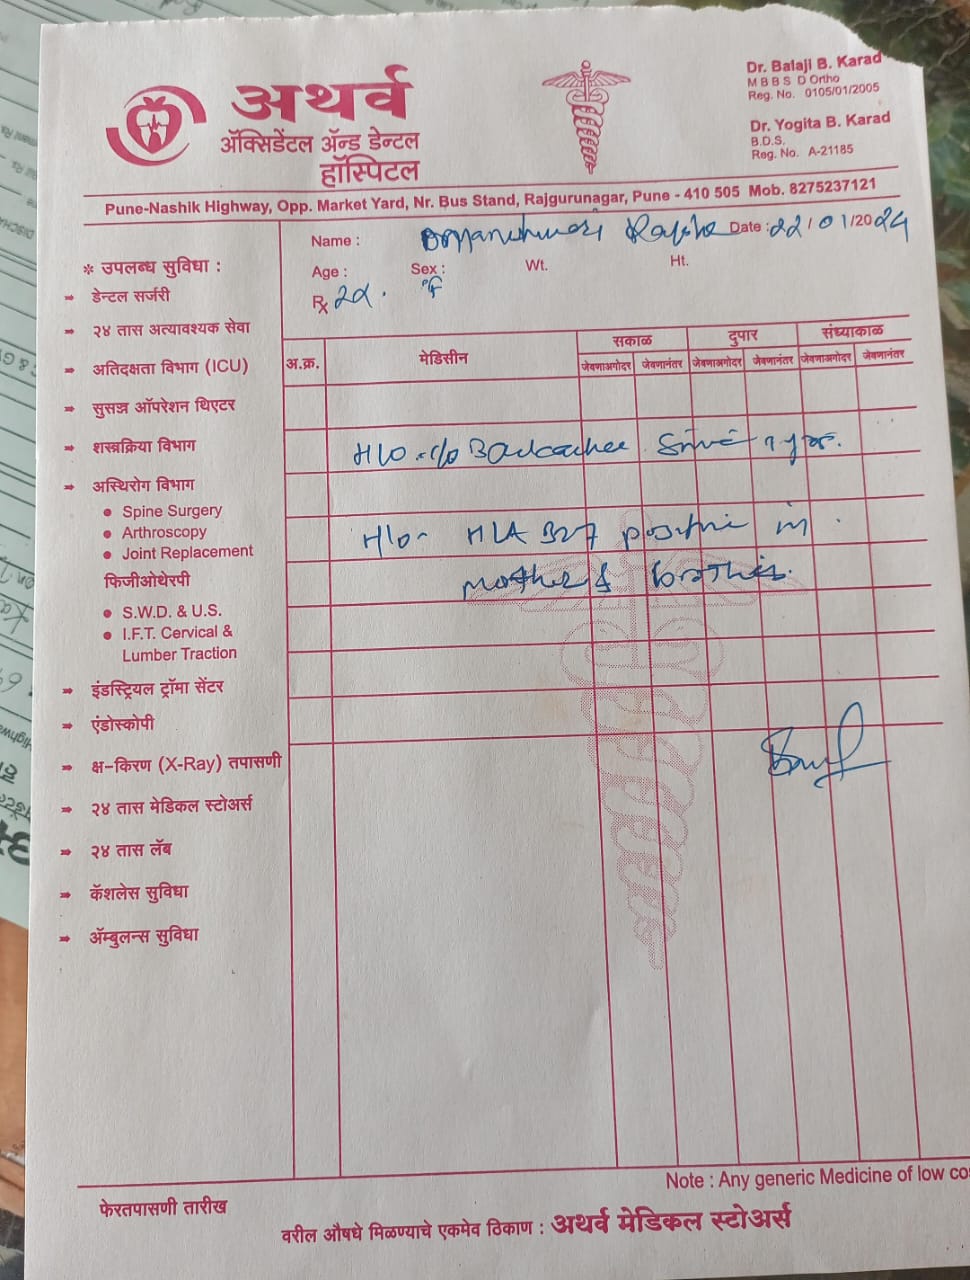 अथर्व
ॲक्सिडेंटल ॲन्ड डेन्टल
हॉस्पिटल
Dr. Balaji B. Karad
M B B S D Ortho
Reg. No. 0105/01/2005
Dr. Yogita B. Karad
B.D.S.
Reg. No. A-21185
Pune-Nashik Highway, Opp. Market Yard, Nr. Bus Stand, Rajgurunagar, Pune - 410 505 Mob. 8275237121
Name : Date : 22/01/2024
Age : Sex : F Wt. Ht.
Rx 22.
* उपलब्ध सुविधा :
डेन्टल सर्जरी
२४ तास अत्यावश्यक सेवा
अतिदक्षता विभाग (ICU)
सुसज्ज ऑपरेशन थिएटर
शस्त्रक्रिया विभाग
अस्थिरोग विभाग
Spine Surgery
Arthroscopy
Joint Replacement
फिजीओथेरपी
S.W.D. & U.S.
I.F.T. Cervical &
Lumber Traction
इंडस्ट्रियल ट्रॉमा सेंटर
एंडोस्कोपी
क्ष-किरण (X-Ray) तपासणी
२४ तास मेडिकल स्टोअर्स
२४ तास लॅब
कॅशलेस सुविधा
ॲम्बुलन्स सुविधा
अ.क्र. मेडिसीन सकाळ दुपार संध्याकाळ
जेवणाअगोदर जेवणानंतर जेवणाअगोदर जेवणानंतर जेवणाअगोदर जेवणानंतर
H/O - c/o Backache since 1 yr.
H/O - HLA B27 positive in
mother & brother.
Note : Any generic Medicine of low co
फेरतपासणी तारीख
वरील औषधे मिळण्याचे एकमेव ठिकाण : अथर्व मेडिकल स्टोअर्स